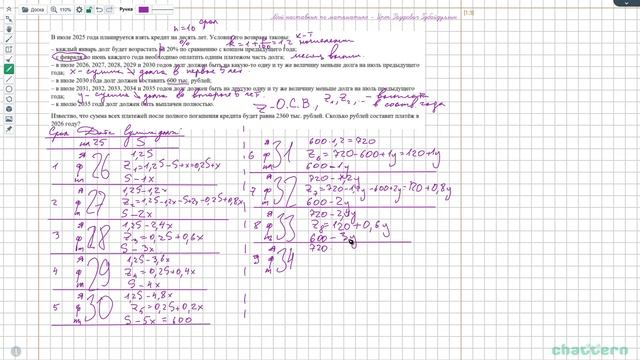 Доска
110%
Ручка
Мой наставник по математике -
[1:9]
n=10 срок
В июле 2025 года планируется взять кредит на десять лет. Условия его возврата таковы:
– каждый январь долг будет возрастать на 20% по сравнению с концом предыдущего года;
– с февраля по июнь каждого года необходимо оплатить одним платежом часть долга;
– в июле 2026, 2027, 2028, 2029 и 2030 годов долг должен быть на какую-то одну и ту же величину меньше долга на июль предыдущего года;
– в июле 2030 года долг должен составить 600 тыс. рублей;
– в июле 2031, 2032, 2033, 2034 и 2035 годов долг должен быть на другую одну и ту же величину меньше долга на июль предыдущего года;
– к июлю 2035 года долг должен быть выплачен полностью.
Известно, что сумма всех платежей после полного погашения кредита будет равна 2360 тыс. рублей. Сколько рублей составит платёж в 2026 году?
Z-О.С.В,
Срок Дата Сумма долга
25 S
1 26
1,2S
Z₁=1,2S-S+x=0,2S+x
S-1x
2 27
1,2S-1,2x
S-2x
3 28
1,2S-2,4x
Z₃=0,2S+0,6x
S-3x
4 29
1,2S-3,6x
Z₄=0,2S+0,4x
S-4x
5 30
1,2S-4,8x
Z₅=0,2S+0,2x
S-5x=600
6 31
600·1,2=720
Z₆=720-600+1y=120+1y
600-1y
7 32
720-1,2y
600-2y
8 33
720-2,4y
Z₈=120+0,6y
600-3y
9 34
720
chattern